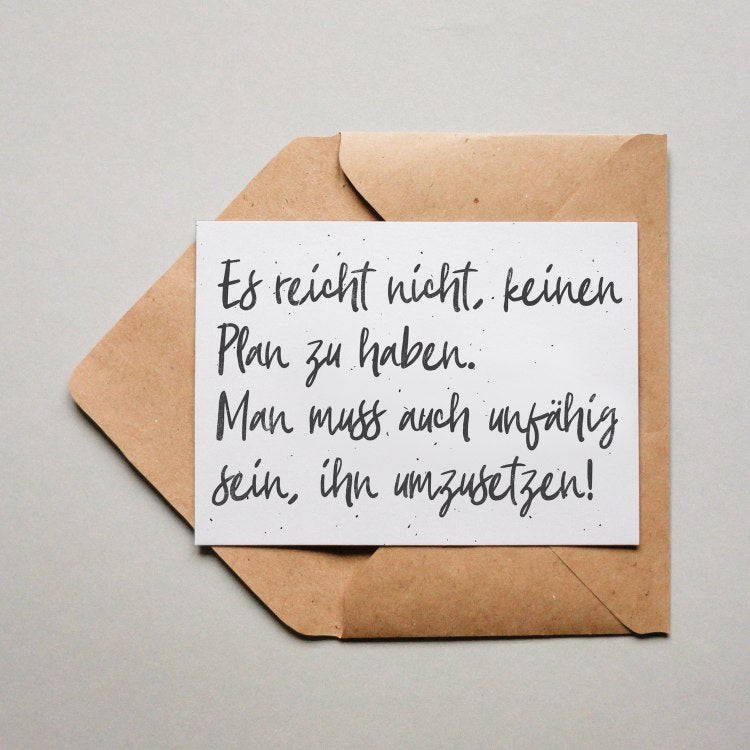 Es reicht nicht, keinen
Plan zu haben.
Man muss auch unfähig
sein, ihn umzusetzen!